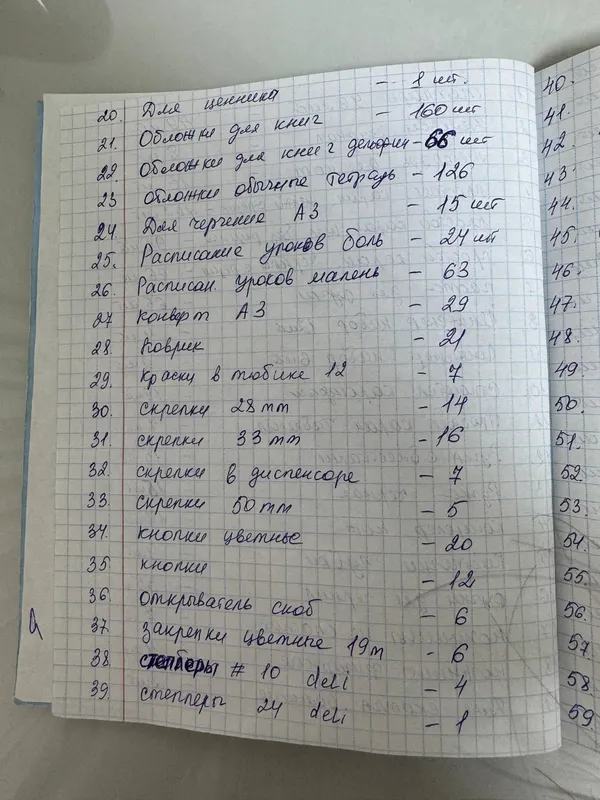 20. Для ценника - 1 шт.
21. Обложки для книг - 160 шт
22 Обложки для книг дельфин - 66 шт
23 обложки обычные тетрадь - 126
24. Для черчения А3 - 15 шт
25. Расписание уроков боль - 24 шт
26. Расписан. уроков малень - 63
27 конверт А3 - 29
28. Коврик - 21
29. краски в тюбике 12 - 7
30. скрепки 28 mm - 14
31. скрепки 33 mm - 16
32. скрепки в диспенсоре - 7
33. скрепки 50 mm - 5
34. кнопки цветные - 20
35 кнопки - 12
36. открыватель скоб - 6
37. закрепки цветные 19 m - 6
38. степлеры # 10 deli - 4
39. степлеры 24 deli - 1
40.
41.
42.
43.
44.
45.
46.
47.
48.
49.
50.
51.
52.
53.
54.
55.
56.
57.
58.
59.